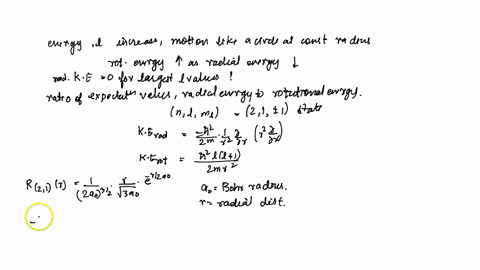 energy, l increase, motion like a circle at const radius
rot. energy ↑ as radial energy ↓
rad. K.E = 0 for largest l values !
ratio of expectn values, radial energy to rotational energy.
(n, l, ml) = (2, 1, ±1) state
K.E rad = -ħ²/2m · 1/r² ∂/∂r (r² ∂/∂r)
K.E rot = ħ² l(l+1) / 2mr²
R(2,1)(r) = 1/(2a0)^3/2 · r/√3a0 · e^-r/2a0
a0 = Bohr radius.
r = radial dist.